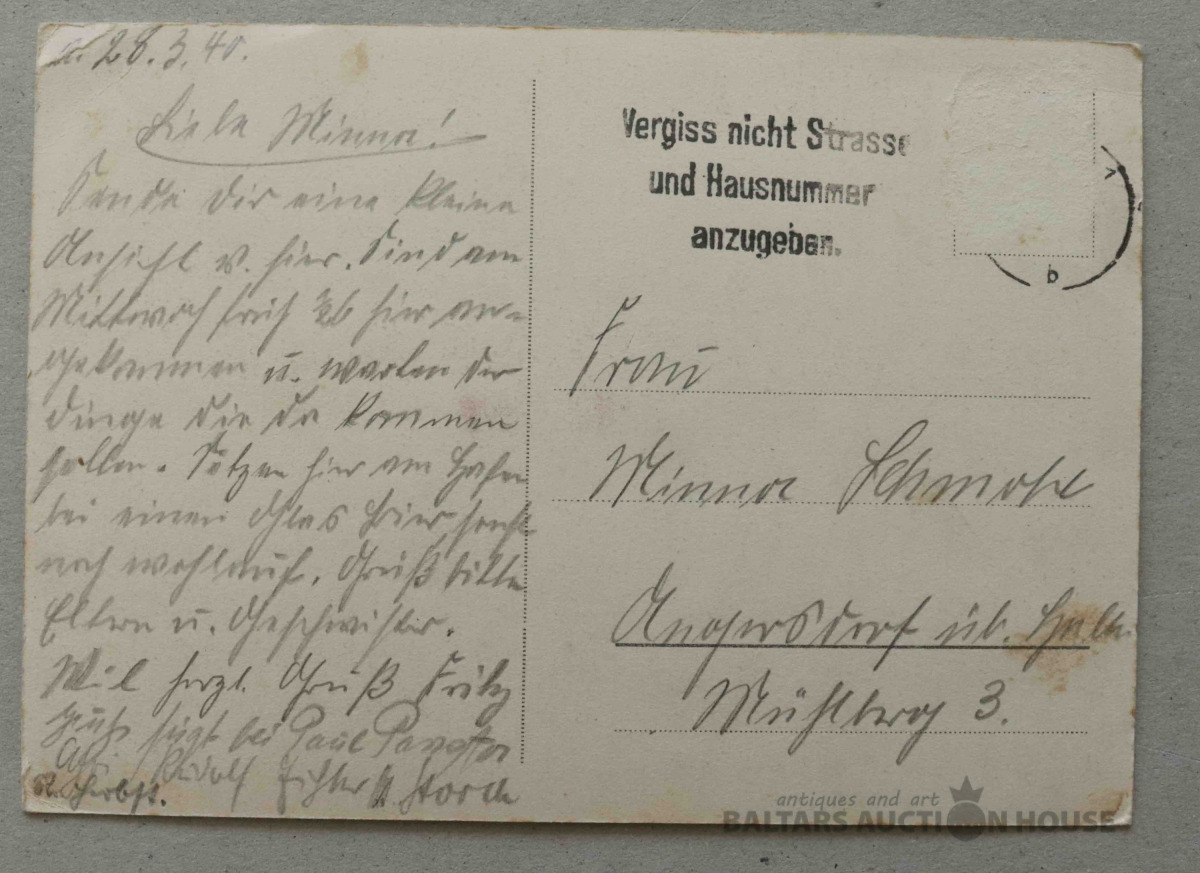 28.3.40.
Liebe Minna!
Sende dir eine kleine
Ansicht v. hier. Sind am
Mittwoch früh hier an-
gekommen u. warten der
dinge die da kommen
sollen. Sitzen hier am Hafen
bei einen Glas Bier sonst
noch wohlauf. Gruß bitte
Eltern u. Geschwister.
Mit herzl. Gruß Fritz
fügt bei Paul
Rudolf
Vergiss nicht Strasse
und Hausnummer
anzugeben.
b
Frau
Minna
Angersdorf üb. Halle
Mühlberg 3.
antiques and art
BALTARS AUCTION HOUSE